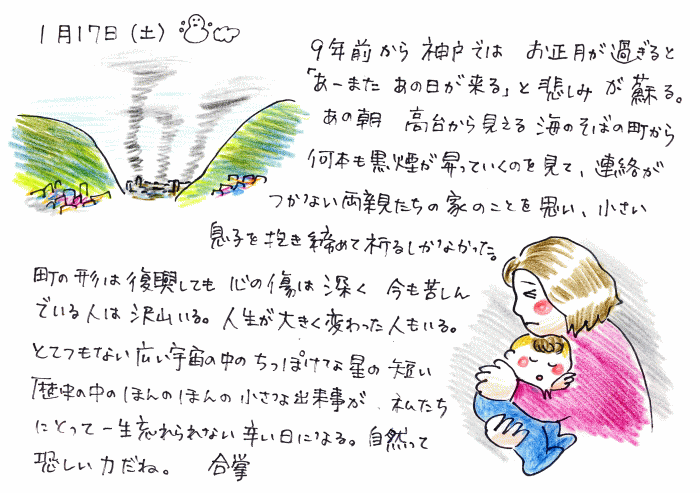 1月17日（土）
9年前から 神戸では お正月が過ぎると
「あーまた あの日が来る」と 悲しみ が 蘇る。
あの朝 高台から見える 海のそばの町から
何本も黒煙が昇っていくのを見て、連絡が
つかない両親たちの家のことを思い、小さい
息子を抱き締めて祈るしかなかった。
町の形は復興しても 心の傷は 深く 今も苦しん
でいる人は 沢山いる。人生が大きく変わった人もいる。
とてつもない広い宇宙の中のちっぽけな星の 短い
歴史の中のほんのほんの小さな出来事が、私たち
にとって一生忘れられない辛い日になる。自然って
恐しい力だね。 合掌